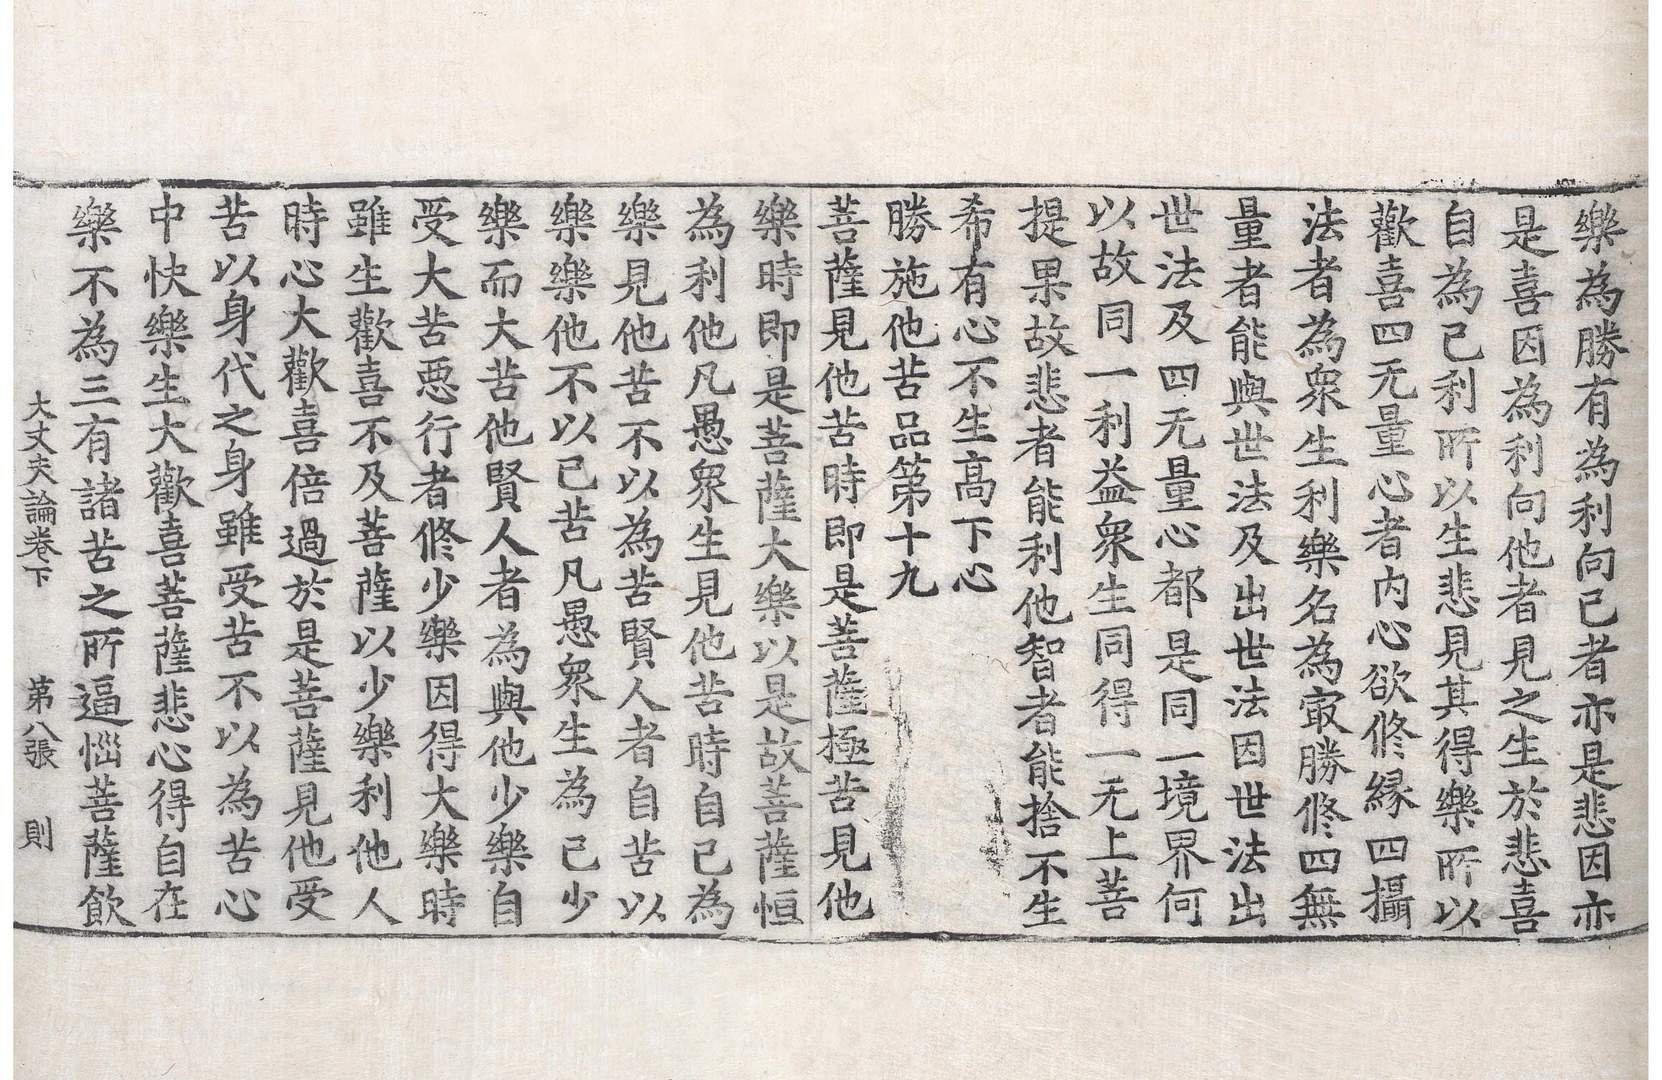 樂為勝有為利向己者亦是悲因亦
是喜因為利向他者見之生於悲喜
自為己利所以生悲見其得樂所以
歡喜四无量心者內心欲修緣四攝
法者為衆生利樂名為㝡勝修四無
量者能與世法及出世法因世法出
世法及四无量心都是同一境界何
以故同一利益衆生同得一无上菩
提果故悲者能利他智者能捨不生
希有心不生高下心
勝施他苦品第十九
菩薩見他苦時即是菩薩極苦見他
樂時即是菩薩大樂以是故菩薩恒
為利他凡愚衆生見他苦時自己為
樂見他苦不以為苦賢人者自苦以
樂樂他不以己苦凡愚衆生為己少
樂而大苦他賢人者為與他少樂自
受大苦惡行者修少樂因得大樂時
雖生歡喜不及菩薩以少樂利他人
時心大歡喜倍過於是菩薩見他受
苦以身代之身雖受苦不以為苦心
中快樂生大歡喜菩薩悲心得自在
樂不為三有諸苦之所逼惱菩薩飲
大丈夫論卷下 第八張 則